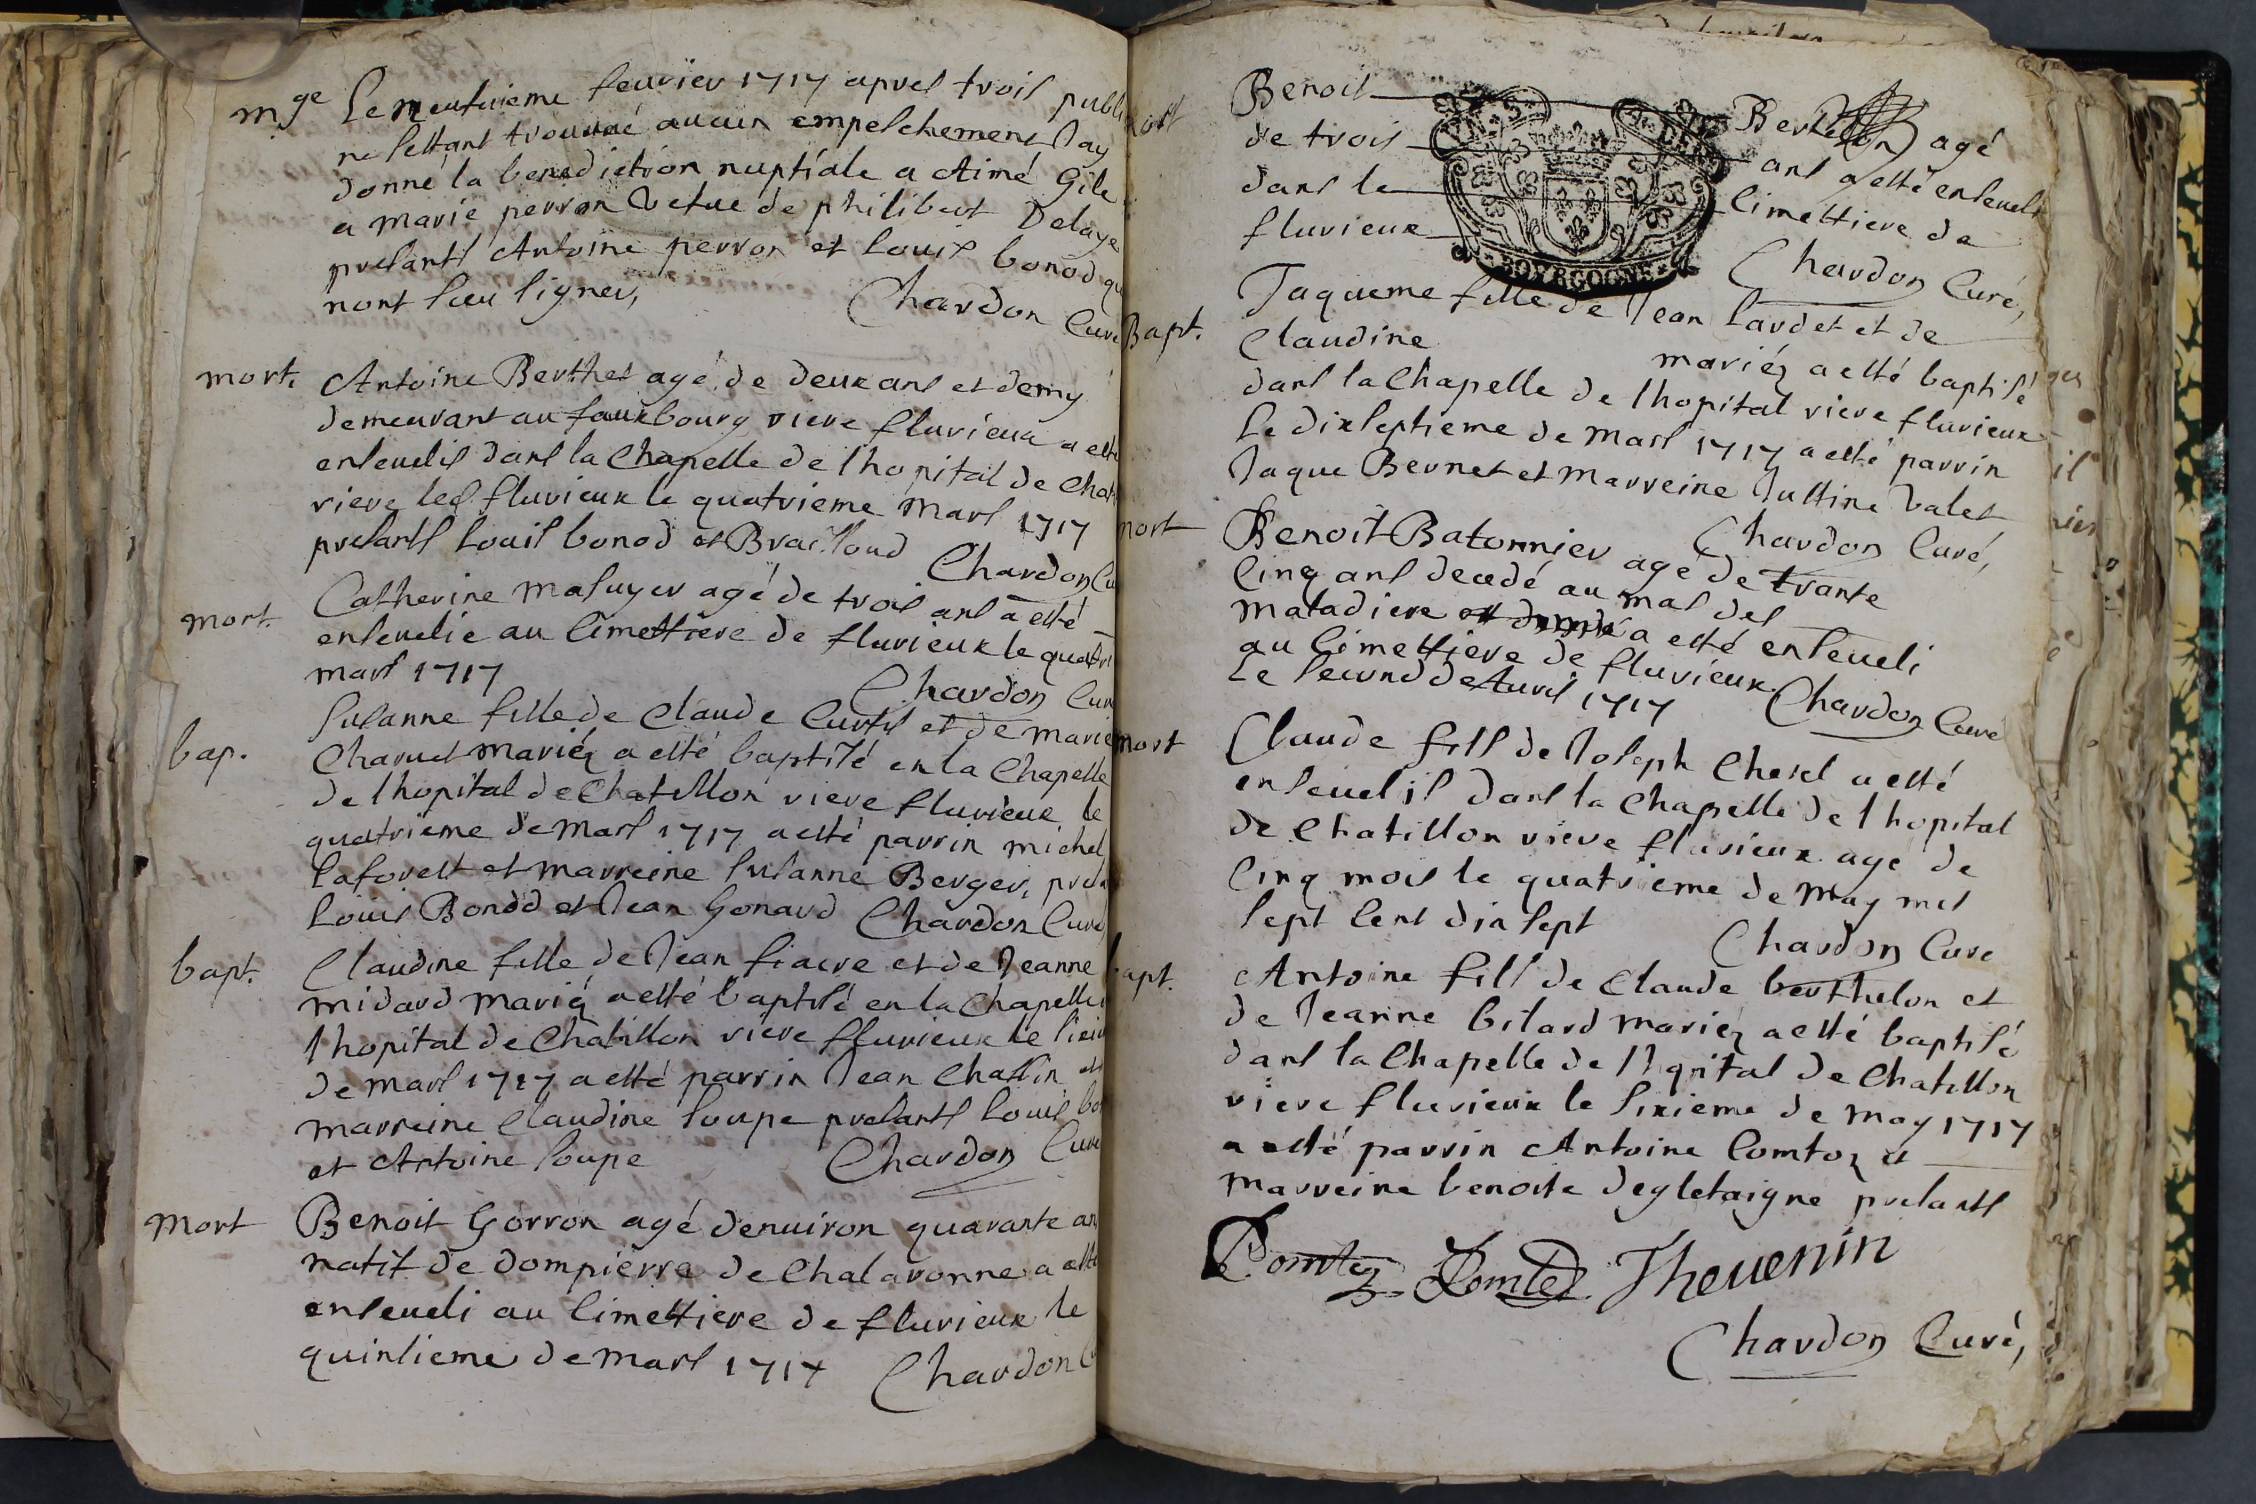 mge Le neufuieme feurier 1717 apres trois publi
ne sestant trouuué aucun empeschement Jay
donné la benediction nuptiale a Aimé Gile
a marie perron vefue de philibert Delaye
presants Antoine perron et Louis bonod qu
nont sceu signer,
Chardon Curé
mort. Antoine Berthet agé de deux ans et demy
demeurant au fauxbourg riere fluvieux a esté
enseuelis dans la Chapelle de lhopital de Chat
riere led fluvieux le quatrieme Mars 1717
presants Louis bonod et Brailloud
Chardon Cu
mort. Catherine masuyer agé de trois ans a esté
enseuelie au Cimettiere de fluvieux le quatri
mars 1717
Chardon Cur
bap. Susanne fille de Claude Curtil et de marie
Charuet mariéz a esté baptisé en la Chapelle
de lhopital de Chatillon riere fluvieux le
quatrieme de Mars 1717 a esté parrin michel
Laforest et marreine susanne Berger, presa
Louis Bonod et Jean Gonard Chardon Curé
bapt. Claudine fille de Jean fiacre et de Jeanne
midard mariéz a esté baptisé en la Chapelle
lhopital de Chatillon riere fluvieux le sixie
de mars 1717 a esté parrin Jean Chassin et
marreine Claudine soupe presants Louis bo
et Antoine soupe Chardon Curé
mort Benoit Gorron agé denuiron quarante an
natif de dompierre de Chalaronne a esté
enseueli au Cimettiere de fluvieux le
quinsieme de Mars 1717 Chardon Cu
mort Benoit Berthelon agé
de trois ans a esté enseueli
dans le Cimettiere de
fluvieux
BOURGOGNE
Chardon Curé,
Bapt. Jaqueme fille de Jean Lardet et de
Claudine mariéz a esté baptisé
dans la Chapelle de lhopital riere fluvieux
Le dixseptieme de Mars 1717 a esté parrin
Jaque Bernet et Marreine Justine Valet
Chardon Curé,
mort Benoit Batonnier agé de trante
Cinq ans decedé au mas des
maladiere a esté enseueli
au Cimettiere de fluvieux
Le second de Auril 1717 Chardon Curé
mort Claude fils de Joseph Chesel a esté
enseuelis dans la Chapelle de lhopital
de Chatillon riere fluvieux agé de
Cinq mois le quatrieme de May mil
sept Cent dix sept
Chardon Curé
bapt. Antoine fils de Claude berthelon et
de Jeanne bilard mariéz a esté baptisé
dans la Chapelle de lhopital de Chatillon
riere fluvieux le sixieme de may 1717
a esté parrin Antoine Comtoz et
marreine benoite degletaigne presants
Comtoz Comtet Theuenin
Chardon Curé,